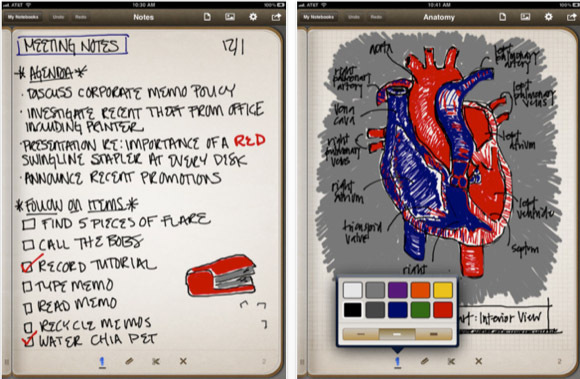 AT&T
10:30 AM
100%
My Notebooks
Undo
Redo
Notes
MEETING NOTES
12/1
*AGENDA*
· DISCUSS CORPORATE MEMO POLICY
· INVESTIGATE RECENT THEFT FROM OFFICE
INCLUDING PRINTER
· PRESENTATION RE: IMPORTANCE OF A RED
SWINGLINE STAPLER AT EVERY DISK
· ANNOUNCE RECENT PROMOTIONS
*FOLLOW ON ITEMS*
FIND 5 PIECES OF FLARE
CALL THE BOBS
RECORD TUTORIAL
TYPE MEMO
READ MEMO
RECYCLE MEMOS
WATER CHIA PET
2
AT&T
10:41 AM
100%
My Notebooks
Undo
Redo
Anatomy
aorta
left
pulmonary
artery
right
pulmonary
artery
left
pulmonary
veins
vena
cava
right
pulmonary
veins
left
atrium
right
atrium
left
ventricle
valve
septum
right
art: Interior View
2